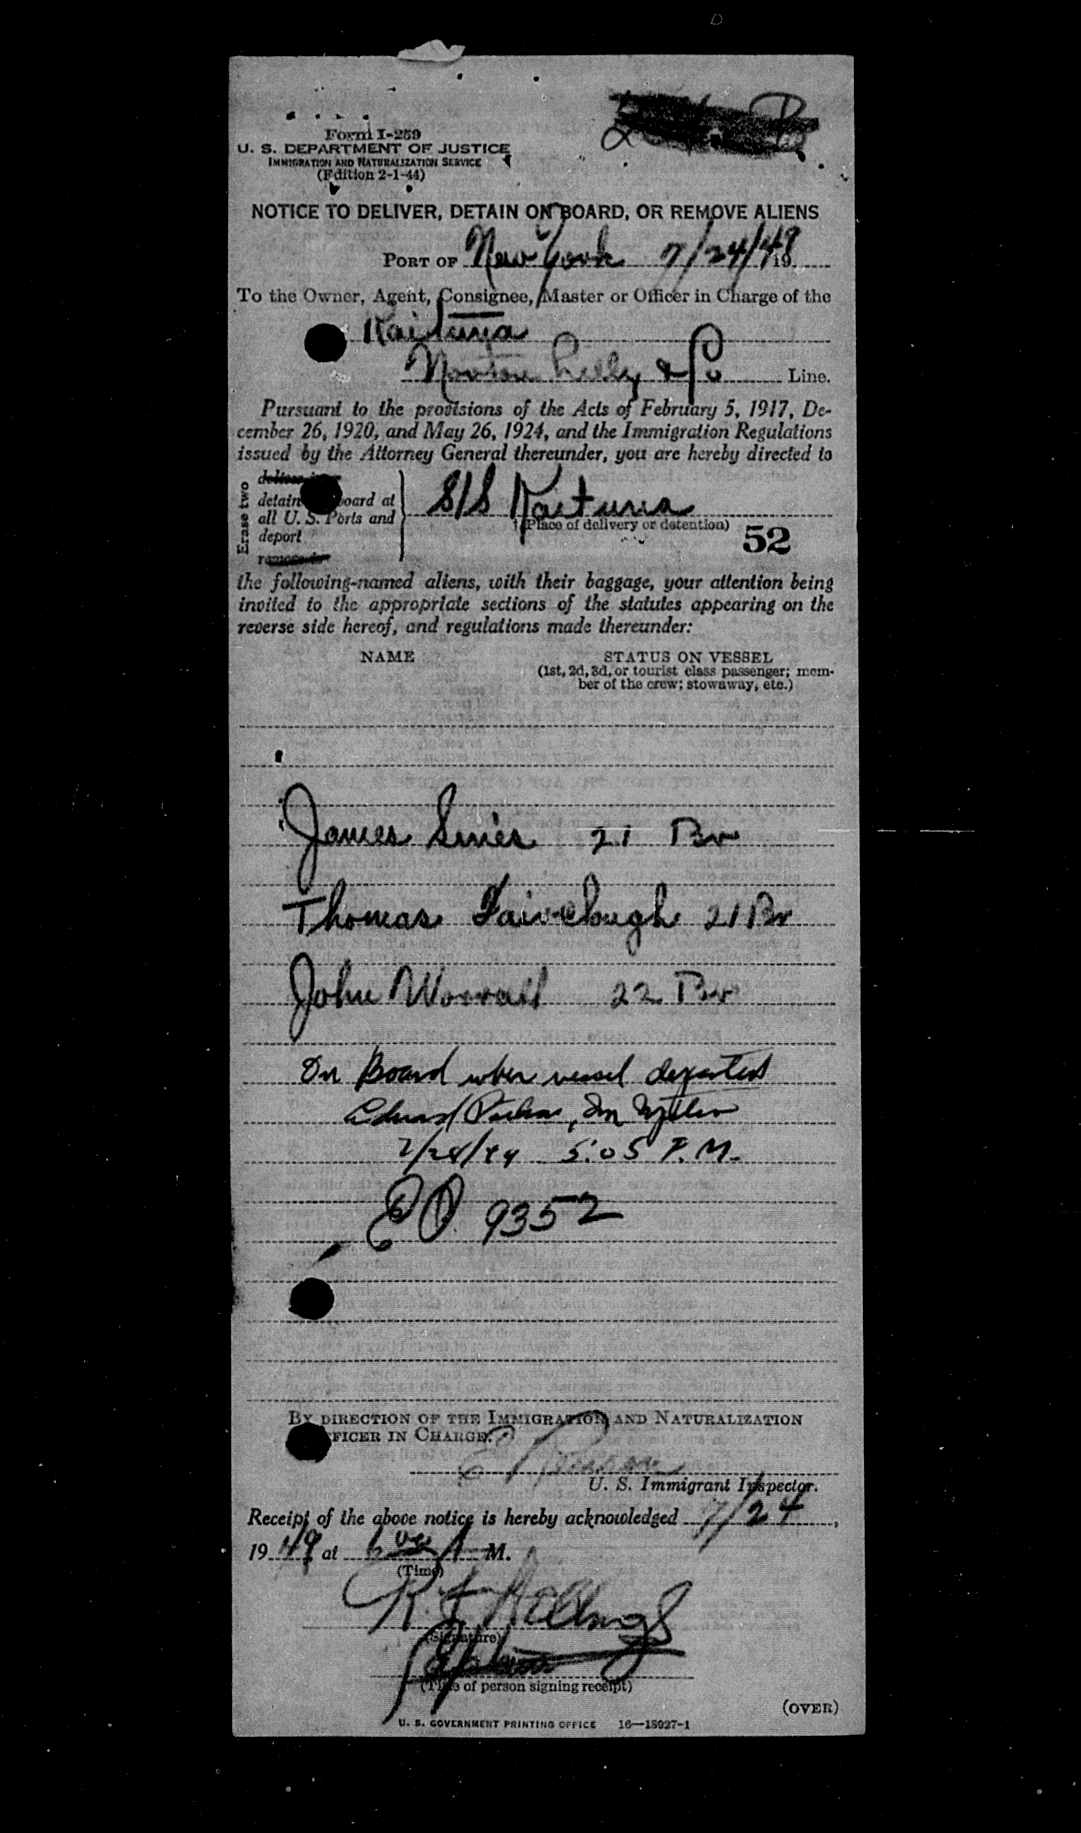 Form I-259
U. S. DEPARTMENT OF JUSTICE
IMMIGRATION AND NATURALIZATION SERVICE
(Edition 2-1-44)
NOTICE TO DELIVER, DETAIN ON BOARD, OR REMOVE ALIENS
PORT OF New York 7/24/49 19
To the Owner, Agent, Consignee, Master or Officer in Charge of the
Kaituna
Norton Lilly & Co Line.
Pursuant to the provisions of the Acts of February 5, 1917, De-
cember 26, 1920, and May 26, 1924, and the Immigration Regulations
issued by the Attorney General thereunder, you are hereby directed to
Erase two
detain board at
all U. S. Ports and
deport
S/S Kaituna
(Place of delivery or detention)
52
the following-named aliens, with their baggage, your attention being
invited to the appropriate sections of the statutes appearing on the
reverse side hereof, and regulations made thereunder:
NAME STATUS ON VESSEL
(1st, 2d, 3d, or tourist class passenger; mem-
ber of the crew; stowaway, etc.)
James 21 Br
Thomas Fairclough 21 Br
John Worrall 22 Br
On Board when vessel departed
5:05 P.M.
EP 9352
BY DIRECTION OF THE IMMIGRATION AND NATURALIZATION
OFFICER IN CHARGE.
U. S. Immigrant Inspector.
Receipt of the above notice is hereby acknowledged 7/24,
1949 at 6 00 A M.
(Time)
(Signature)
(Title of person signing receipt)
(OVER)
U. S. GOVERNMENT PRINTING OFFICE 16—18927-1